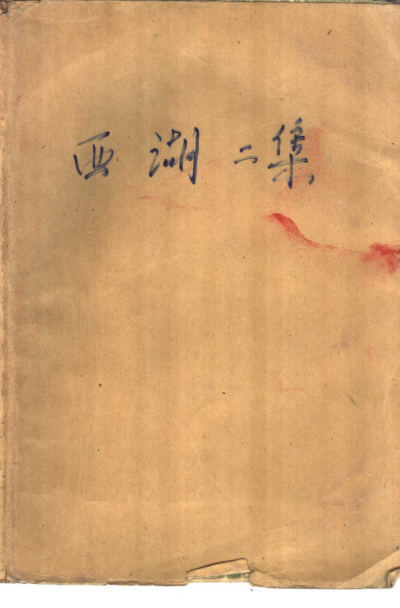 西湖二集